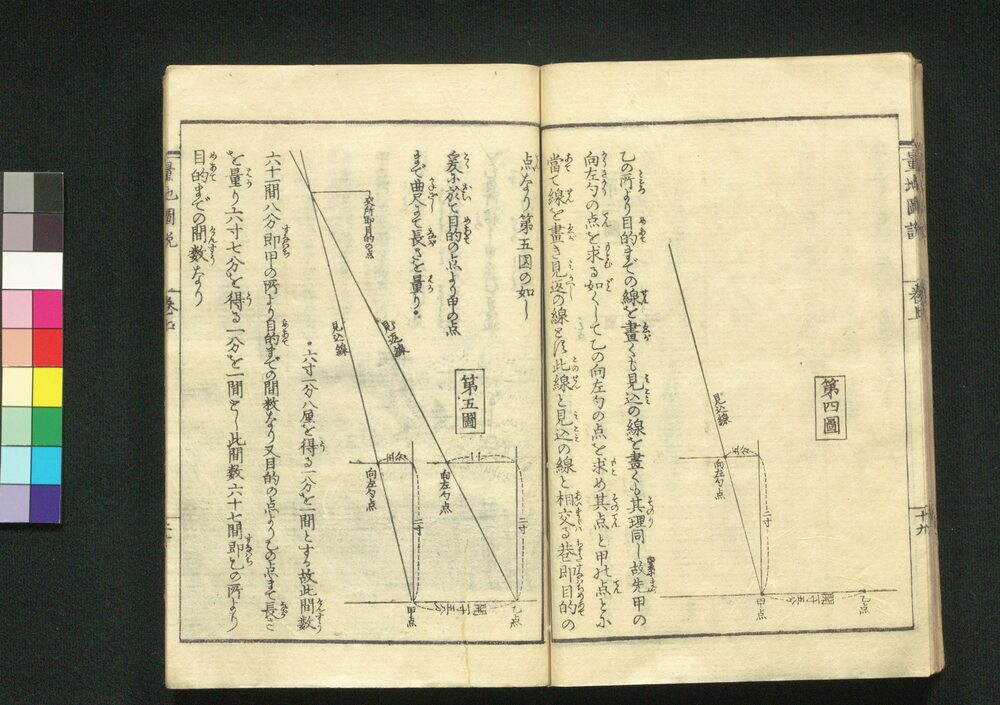 量地圖説
卷上
十九
第四圖
見込線
向左勺点
五分
二寸
甲点
乙点
乙の所より目的までの線を畫くも見込の線を畫くも其理同し故先甲の
向左勺の点を求る如くして乙の向左勺の点を求め其点と甲乙点とに
當て線を畫き見返の線と此線と見込の線と相交る巷即目的の
点なり第五図の如し
爰に於て目的の点より甲の点
まで曲尺にて長さを量り
第五圖
交所即目的の点
見返線
見込線
向左勺点
向左勺点
五分
一寸
二寸
二寸
甲点
乙点
六寸一分八厘を得る一分を一間とする故此間數
六十一間八分即甲の所より目的までの間數なり又目的の点より乙の点まで長さ
を量り六寸七分を得る一分を一間とし此間數六十七間即乙の所より
目的までの間數なり
量地圖説
卷上